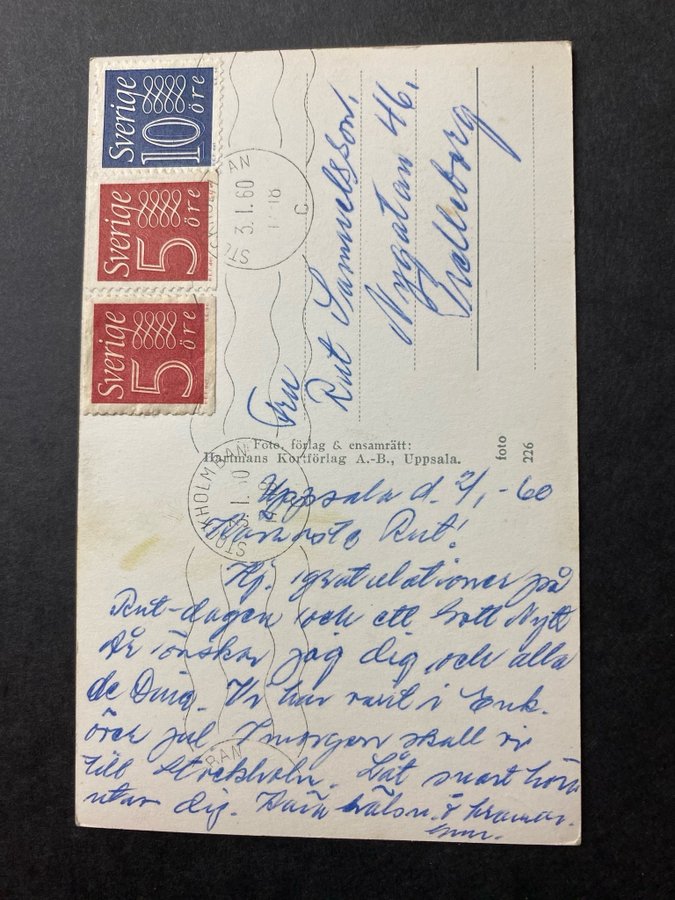 Sverige
10 öre
Sverige
5 öre
Sverige
5 öre
STOCKHOLM BAN
3.1.60
C
Fru
Rut Samuelsson,
Nygatan 46,
Trelleborg
Foto, förlag & ensamrätt:
Hartmans Kortförlag A.-B., Uppsala.
foto
226
STOCKHOLM BAN
Uppsala d. 2/1 -60
Käraste Rut!
Hj. gratulationer på
Rut-dagen och ett Gott Nytt
År önskar jag dig och alla
de Dina. Vi har varit i Enk.
över jul. I morgon skall vi
till Stockholm. Låt snart höra
utav dig. Kära hälsn. & kramar.
BAN